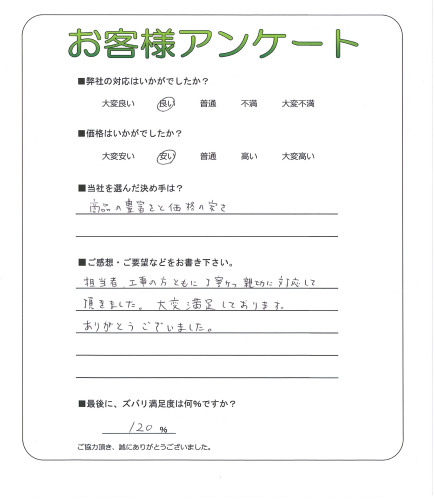 お客様アンケート
■弊社の対応はいかがでしたか？
大変良い 良い 普通 不満 大変不満
■価格はいかがでしたか？
大変安い 安い 普通 高い 大変高い
■当社を選んだ決め手は？
商品の豊富さと価格の安さ
■ご感想・ご要望などをお書き下さい。
担当者 工事の方ともに丁寧かつ親切に対応して
頂きました。大変満足しております。
ありがとうございました。
■最後に、ズバリ満足度は何%ですか？
120 %
ご協力頂き、誠にありがとうございました。